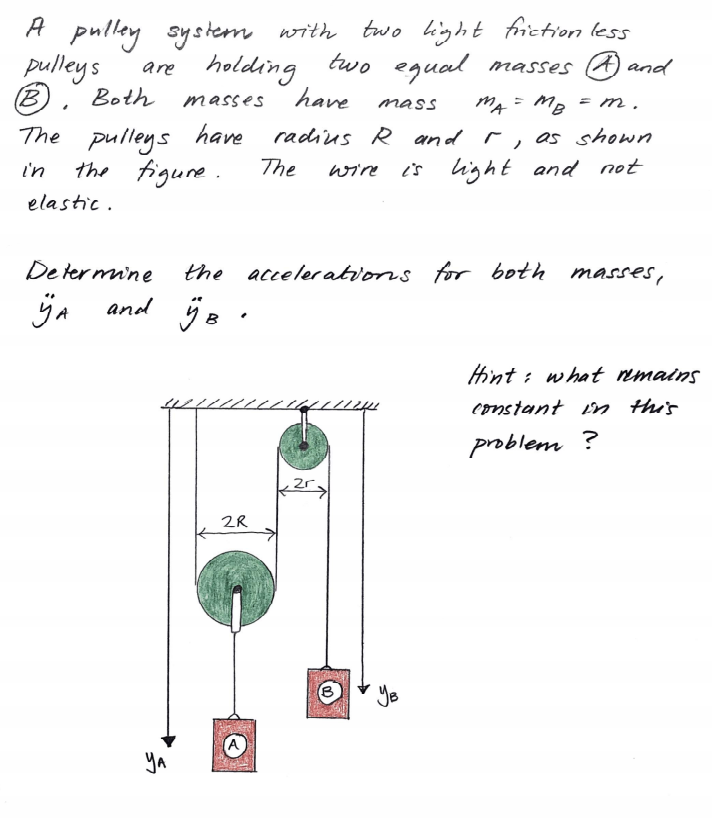 A pulley system with two light frictionless
pulleys are holding two equal masses Ⓐ and
Ⓑ. Both masses have mass m_A = m_B = m.
The pulleys have radius R and r, as shown
in the figure. The wire is light and not
elastic.
Determine the accelerations for both masses,
ÿ_A and ÿ_B.
Hint: what remains
constant in this
problem?
2r
2R
B
y_B
A
y_A